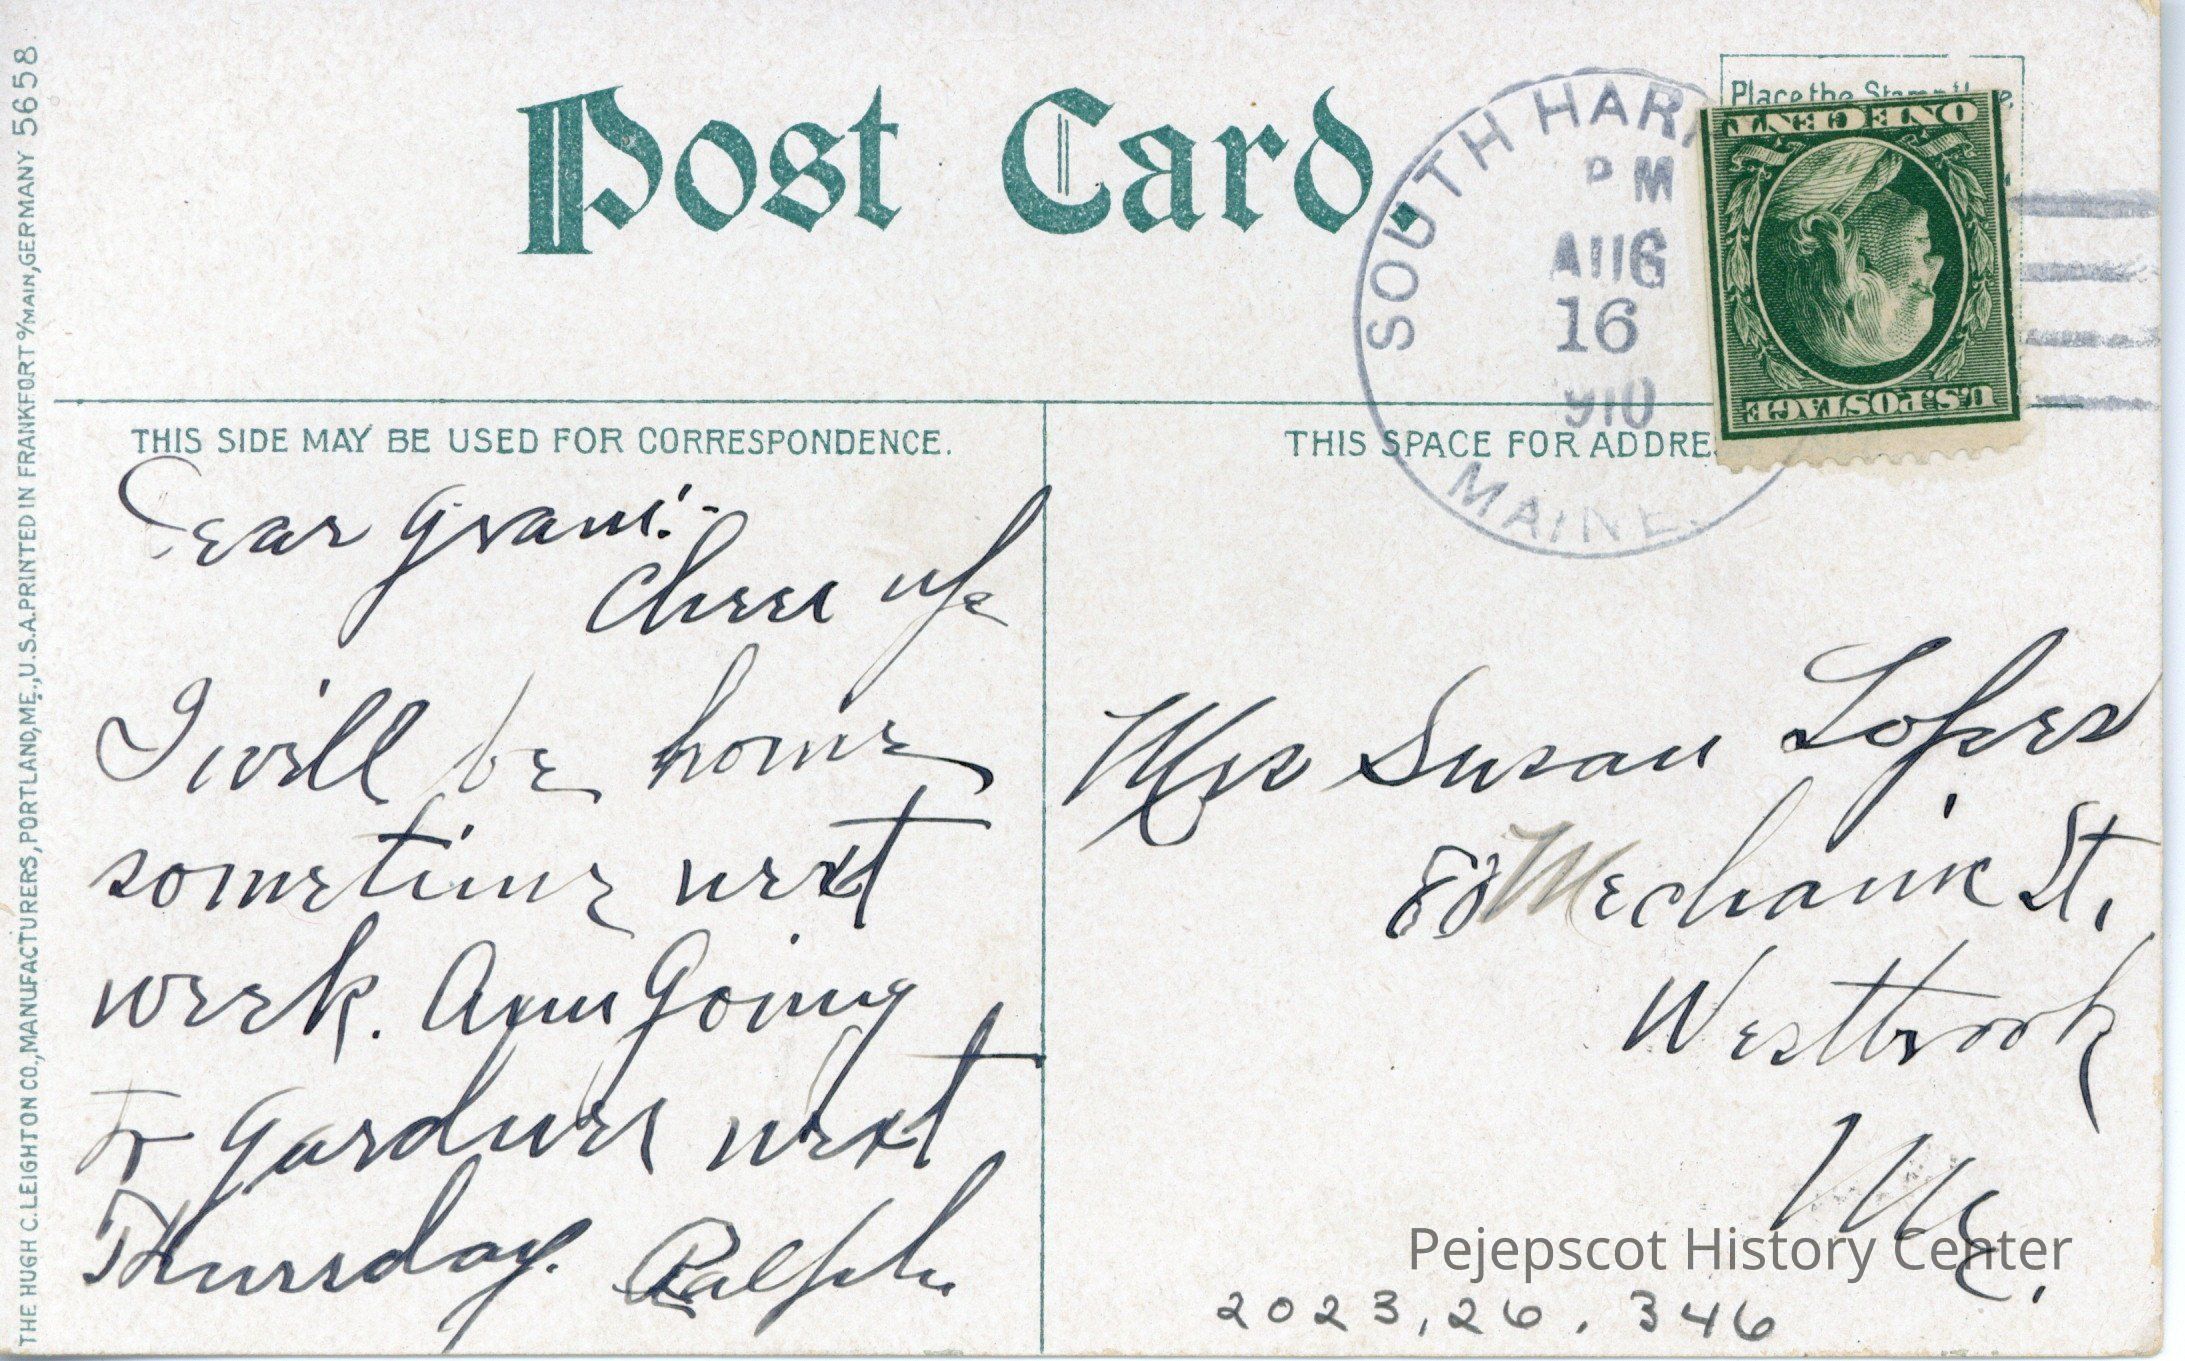 THE HUGH C. LEIGHTON CO., MANUFACTURERS, PORTLAND, ME., U.S.A. PRINTED IN FRANKFORT o/MAIN, GERMANY 5658.
Post Card.
Place the Stamp
SOUTH HAR
PM
AUG
16
910
MAINE.
ONE CENT
U.S. POSTAGE
THIS SIDE MAY BE USED FOR CORRESPONDENCE.
Dear Gram:-
Cheer up
I will be home
sometime next
week. Am Going
to Gardner next
Thursday. Ralph.
THIS SPACE FOR ADDRE
Mrs Susan Lopes
Mechanic St,
Westbrook
Me.
Pejepscot History Center
2023.26.346